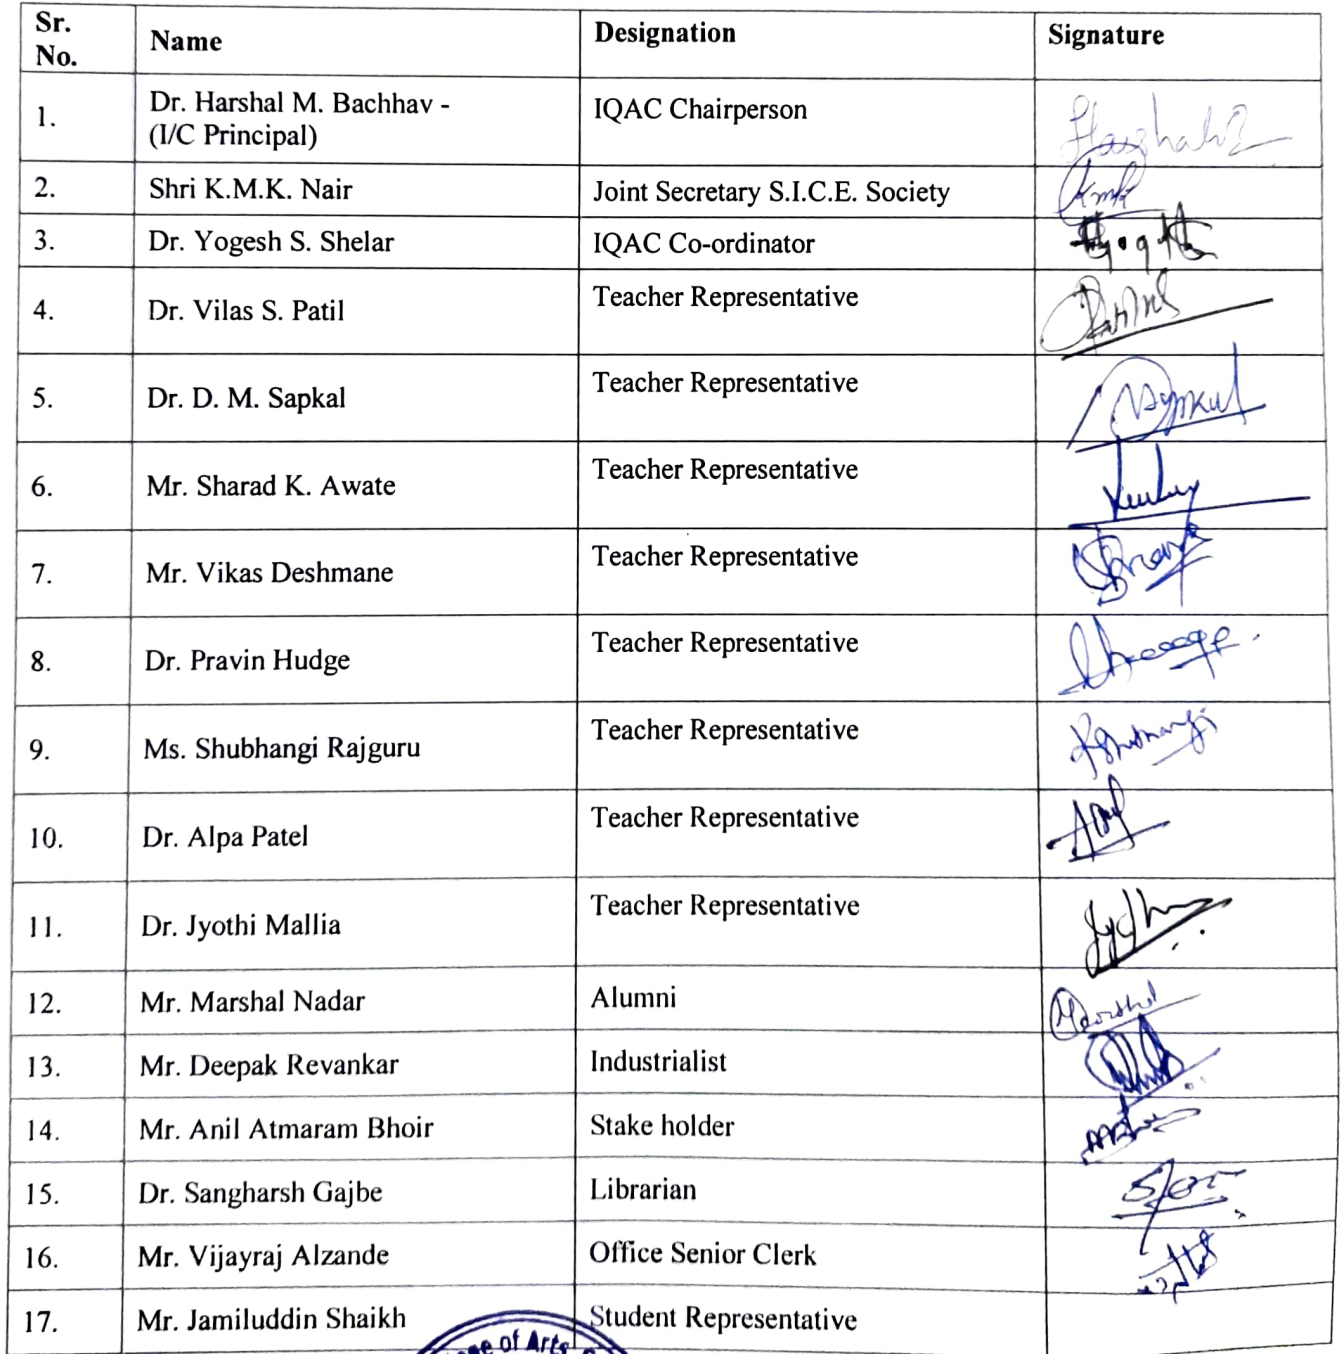 Sr. No. Name Designation Signature
1. Dr. Harshal M. Bachhav - (I/C Principal) IQAC Chairperson
2. Shri K.M.K. Nair Joint Secretary S.I.C.E. Society
3. Dr. Yogesh S. Shelar IQAC Co-ordinator
4. Dr. Vilas S. Patil Teacher Representative
5. Dr. D. M. Sapkal Teacher Representative
6. Mr. Sharad K. Awate Teacher Representative
7. Mr. Vikas Deshmane Teacher Representative
8. Dr. Pravin Hudge Teacher Representative
9. Ms. Shubhangi Rajguru Teacher Representative
10. Dr. Alpa Patel Teacher Representative
11. Dr. Jyothi Mallia Teacher Representative
12. Mr. Marshal Nadar Alumni
13. Mr. Deepak Revankar Industrialist
14. Mr. Anil Atmaram Bhoir Stake holder
15. Dr. Sangharsh Gajbe Librarian
16. Mr. Vijayraj Alzande Office Senior Clerk
17. Mr. Jamiluddin Shaikh Student Representative
of Arts